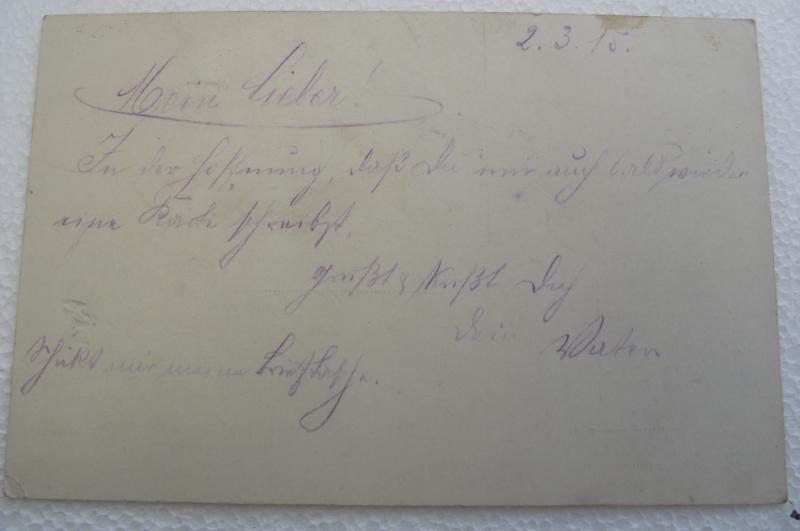 2. 3. 15.
Mein Lieber!
In der Hoffnung, daß Du mir auch bald wieder
eine Karte schreibst,
grüßt & küßt Dich
Dein Vater
Schickt mir meine Brieftasche.